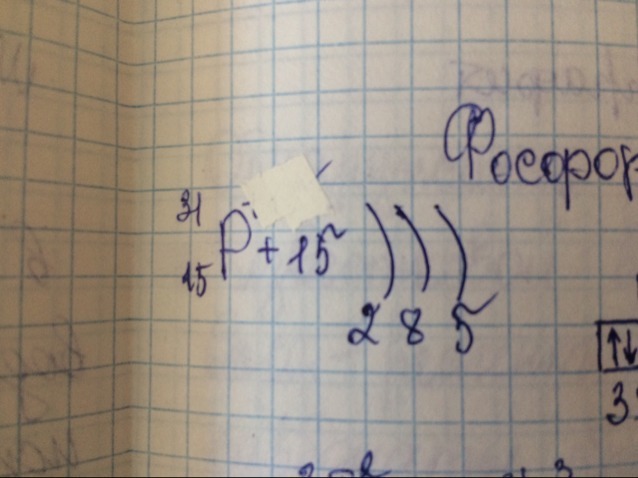 Фосфор
31
P + 15 ) ) )
15
2 8 5
↑↓
3s